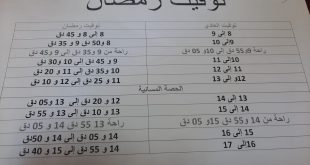 توقيت رمضان
توقيت العادي توقيت رمضان
8 الى 9 8 الى 8 و 45 دق
9 الى 10 8 و50 دق 9 و 35 دق
راحة من 9و55 دق الى 10و 05 دق راحة من 9 و 35 دق الى 9 و45 دق
10 الى 11 9 و 45 دق الى 10 و 30 دق
11 الى 12 10 و 35 دق الى 11 و 20 دق
12 و الى 13 11 و 25 دق الى 12 و 10 دق
الحصة المسائية
13 الى 14 12 و 20 دق الى 13 و 05 دق
14 الى 15 13 و 10 دق الى 13 و 55 دق
راحة من 14 و55 دق 15 و 05 دق راحة 13 و 55 دق 14 و 05 دق
15 الى 16 14 و 05 دق 14 و 50 دق
16 الى 17 14 و 55 دق الى 15 و 40 دق